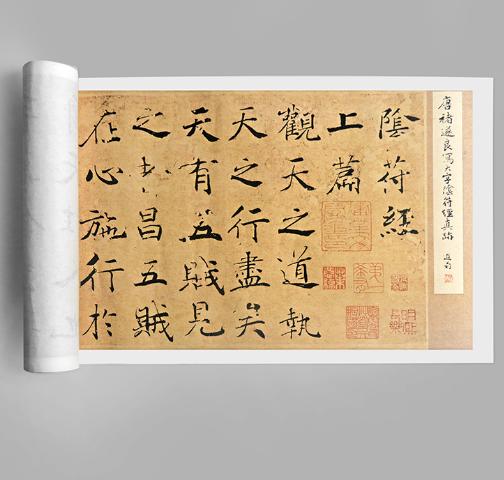 唐褚遂良寫大字陰符經真跡
陰符經
上篇
觀天之道執
天之行盡矣
天有五賊見
之者昌五賊
在心施行於